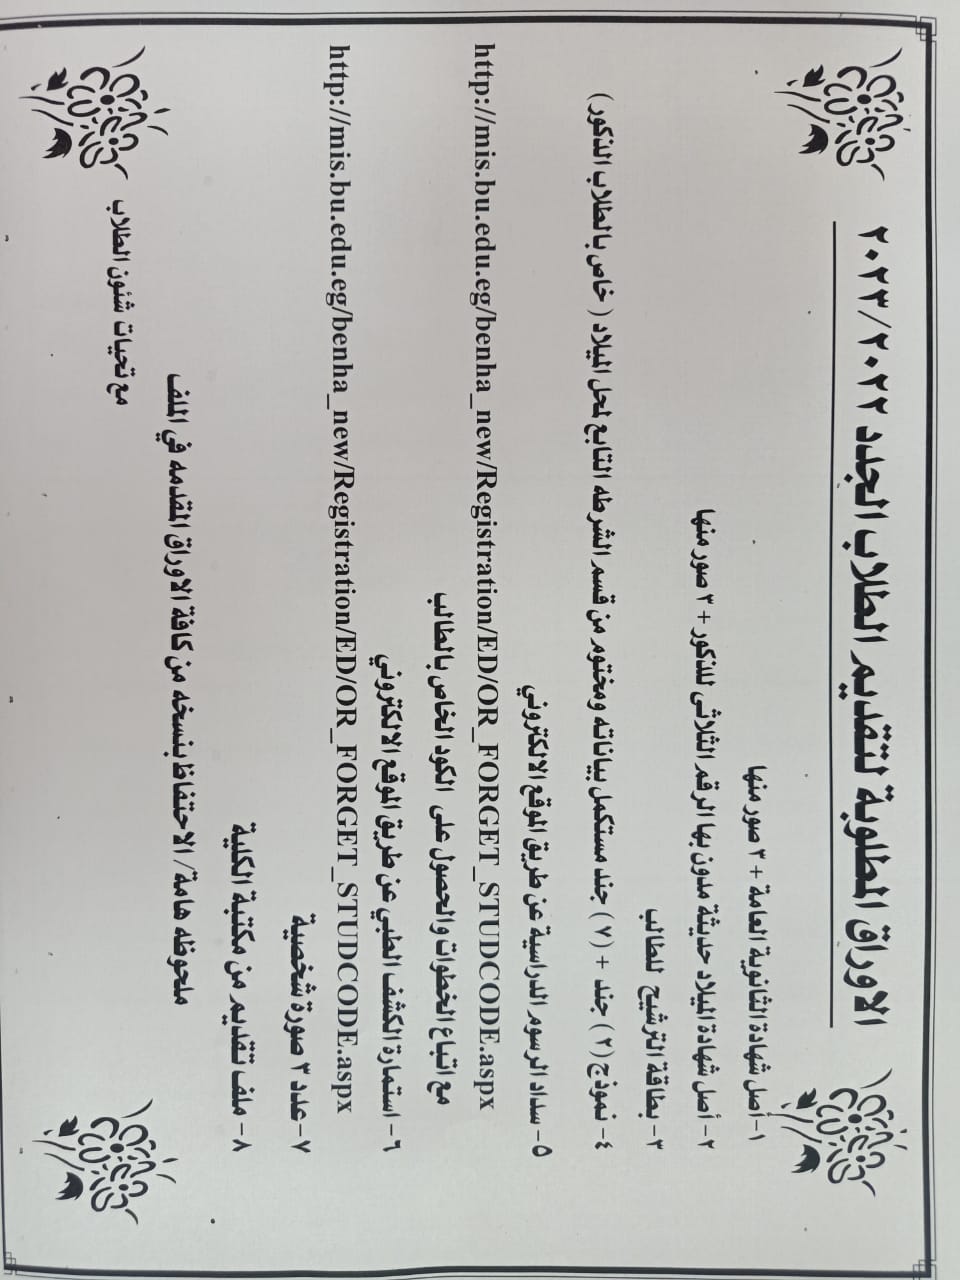 الاوراق المطلوبة لتقديم الطلاب الجدد ٢٠٢٣/٢٠٢٢
١- أصل شهادة الثانوية العامة + ٣ صور منها
٢- أصل شهادة الميلاد حديثة مدون بها الرقم الثلاثى للذكور + ٣ صور منها
٣- بطاقة الترشيح للطالب
٤- نموذج (٢) جند + (٧) جند مستكمل بياناته ومختوم من قسم الشرطه التابع لمحل الميلاد ( خاص بالطلاب الذكور )
٥- سداد الرسوم الدراسية عن طريق الموقع الالكتروني
http://mis.bu.edu.eg/benha_new/Registration/ED/OR_FORGET_STUDCODE.aspx
مع اتباع الخطوات والحصول على الكود الخاص بالطالب
٦- استمارة الكشف الطبي عن طريق الموقع الالكتروني
http://mis.bu.edu.eg/benha_new/Registration/ED/OR_FORGET_STUDCODE.aspx
٧- عدد ٣ صورة شخصية
٨- ملف تقديم من مكتبة الكلية
ملحوظه هامة/ الاحتفاظ بنسخه من كافة الاوراق المقدمه في الملف
مع تحيات شئون الطلاب